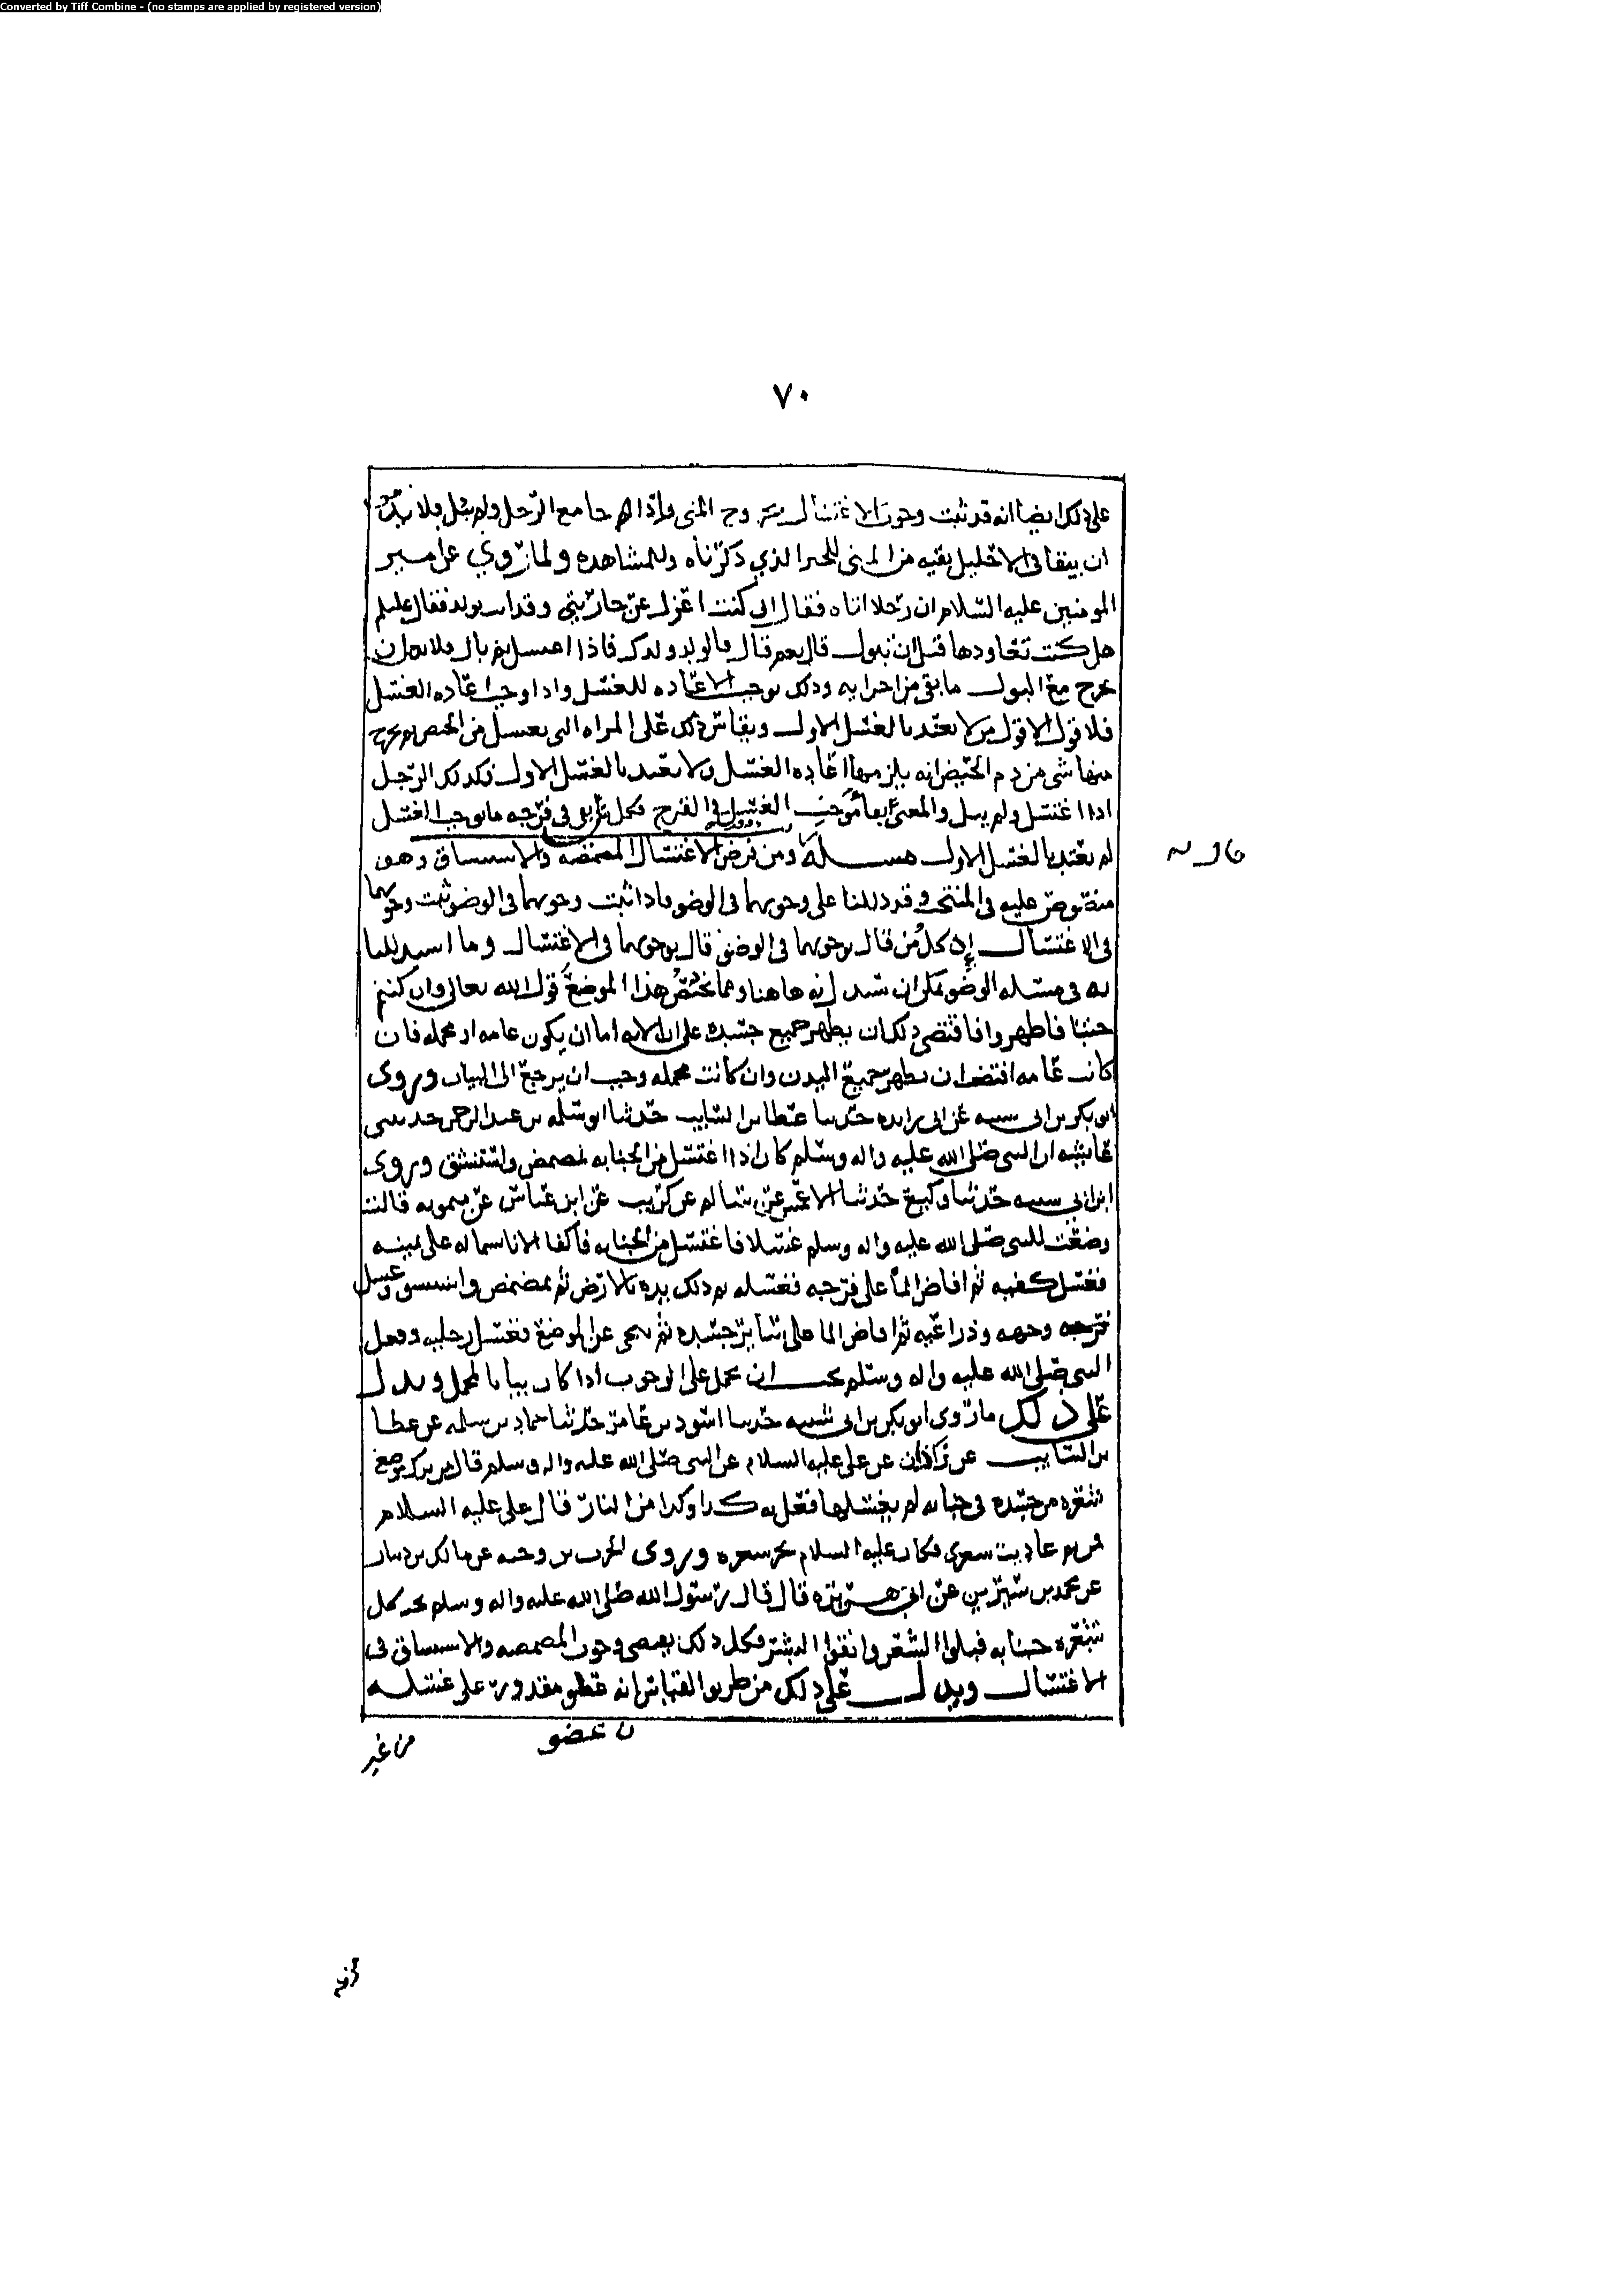 Converted by Tiff Combine - (no stamps are applied by registered version)
٧٠
على ذلك ايضا انه قد ثبت وجوب الاغتسال بخروج المنى واذا جامع الرجل ولم يبل فلا بد
ان يبقا في الاحليل بقيه من المنى للخبر الذي ذكرناه وللمشاهده ولما روي عن امير
المومنين عليه السلام ان رجلا اتاه فقال اني كنت اعزل عن جاريتي وقد اتت بولد فقال عليلم
هل كنت تعاودها قبل ان تبول قال نعم قال فالولد ولدك فاذا اغتسل ثم بال فلا بد ان
يخرج مع البول ما بقي من اجزايه وذلك يوجب الاعاده للغسل واذا وجب اعاده الغسل
فلا قول الا قول من لا يعتد بالغسل الاول ويقاس ذلك على المراه التى تغتسل من الحيض ثم يخرج
منها شي من دم الحيض انه يلزمها اعاده الغسل ولا تعتد بالغسل الاول فكذلك الرجل
اذا اغتسل ولم يبل والمعنى بقا موجب الغسل في الفرج فكل من بقى في فرجه ما يوجب الغسل
لم يعتد بالغسل الاول مسله ومن فرض الاغتسال المضمضه والاستنشاق وهو
منصوص عليه في المنتخب وقد دللنا على وجوبهما في الوضو فاذا ثبت وجوبهما في الوضو ثبت وجوبهما
في الاغتسال إن كل من قال بوجوبهما في الوضو قال بوجوبهما في الاغتسال وما استدللنا
به في مسله الوضو يمكن ان يستدل به هاهنا ومما يختص هذا الموضع قول الله تعالى وان كنتم
جنبا فاطهروا فاقتضى ذلك ان يطهر جميع جسده على ان الايه اما ان يكون عامه او مجمله فان
كانت عامه اقتضت ان يطهر جميع البدن وان كانت مجمله وجب ان يرجع الى البيان وروى
ابو بكر بن ابي شيبه عن ابي زايده حدثنا عطا بن السايب حدثنا ابو سلمه بن عبد الرحمن حدثتنى
عايشه ان النبي صلى الله عليه واله وسلم كان اذا اغتسل من الجنابه تمضمض واستنشق وروى
ابن ابي شيبه حدثنا وكيع حدثنا الاعمش عن سالم عن كريب عن ابن عباس عن ميمونه قالت
وضعت للنبي صلى الله عليه واله وسلم غسلا فاغتسل من الجنابه فاكفا الانا بشماله على يمينه
فغسل كفيه ثم افاض الما على فرجه فغسله ثم دلك يده بالارض ثم تمضمض واستنشق وغسل
وجهه وذراعيه ثم افاض الما على ساير جسده ثم تنحى عن الموضع فغسل رجليه وفعل
النبي صلى الله عليه واله وسلم يجب ان يحمل على الوجوب اذا كان بيانا لمجمل ويدل
على ذلك ما روى ابو بكر بن ابي شيبه حدثنا اسود بن عامر حدثنا حماد بن سلمه عن عطا
بن السايب عن زاذان عن علي عليه السلام عن النبي صلى الله عليه واله وسلم قال من ترك موضع
شعره من جسده في جنابه لم يغسلها فعل به كذا وكذا من النار قال علي عليه السلام
فمن ثم عاديت شعري فكان عليه السلام يجز شعره وروى الحرث بن وجيه عن مالك بن دينار
عن محمد بن سيرين عن ابي هريره قال قال رسول الله صلى الله عليه واله وسلم تحت كل
شعره جنابه فبلوا الشعر وانقوا البشر فكل ذلك يقتضي وجوب المضمضه والاستنشاق في
الاغتسال ويدل على ذلك من طريق القياس انه عضو مقدور على غسله
ن عضو
من غير